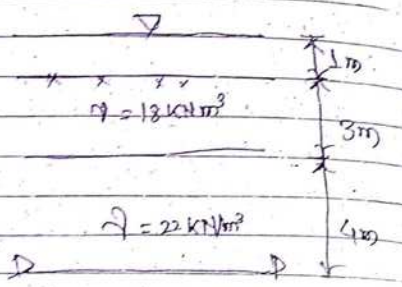 1m
γ = 18 KN/m³
3m
γ = 22 KN/m³
4m